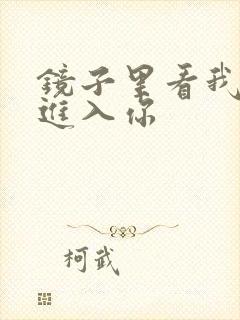 鏡子里看我
進入你
柯武